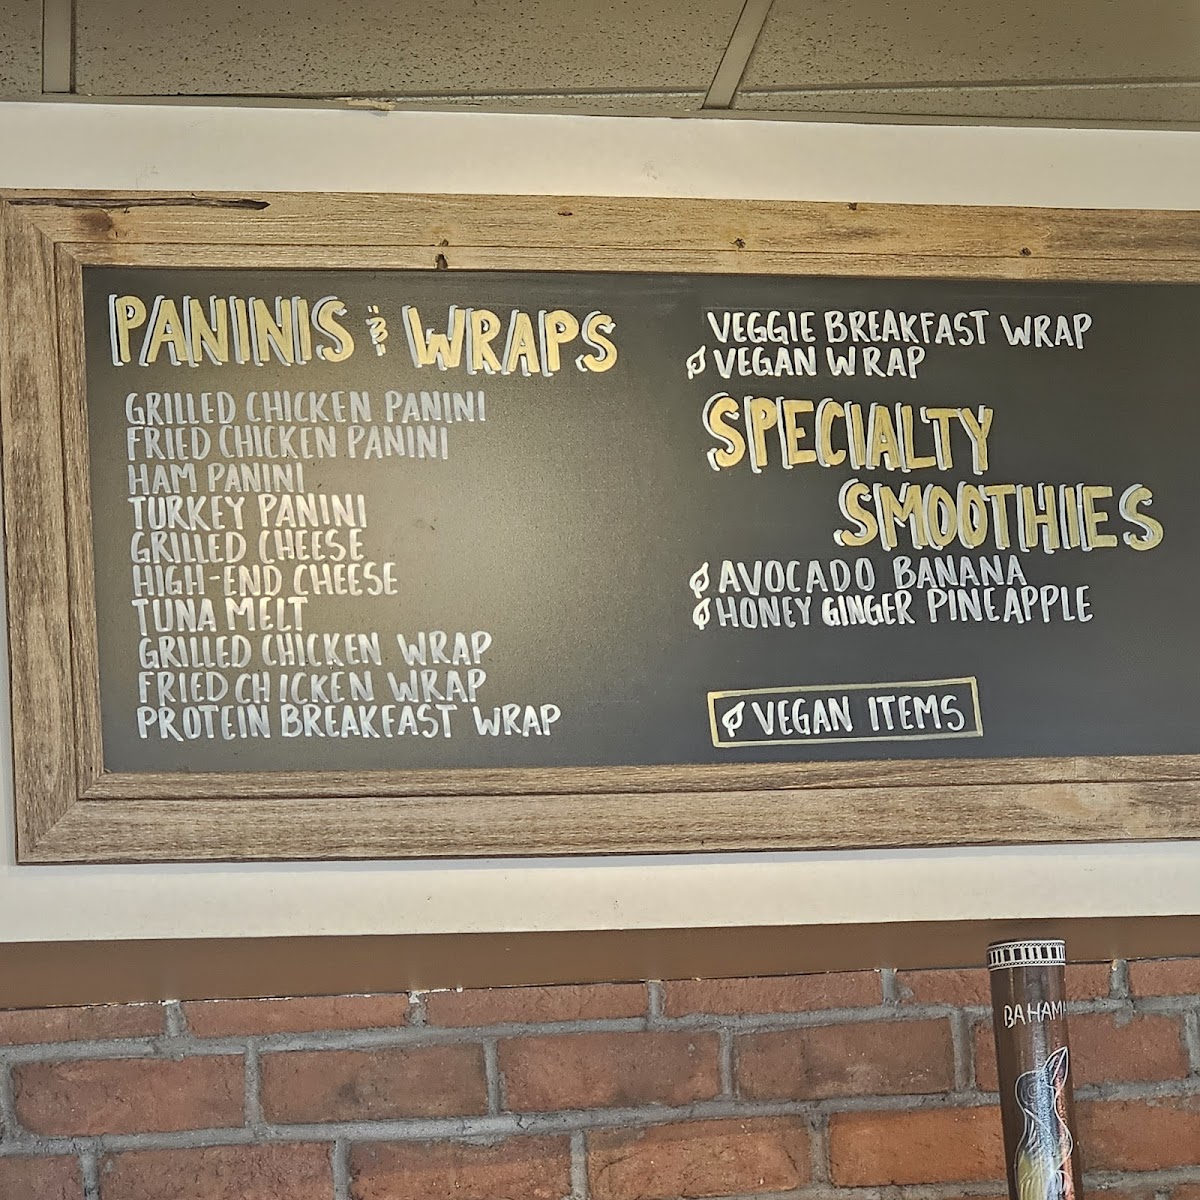 PANINIS & WRAPS
GRILLED CHICKEN PANINI
FRIED CHICKEN PANINI
HAM PANINI
TURKEY PANINI
GRILLED CHEESE
HIGH-END CHEESE
TUNA MELT
GRILLED CHICKEN WRAP
FRIED CHICKEN WRAP
PROTEIN BREAKFAST WRAP
VEGGIE BREAKFAST WRAP
VEGAN WRAP
SPECIALTY
SMOOTHIES
AVOCADO BANANA
HONEY GINGER PINEAPPLE
VEGAN ITEMS